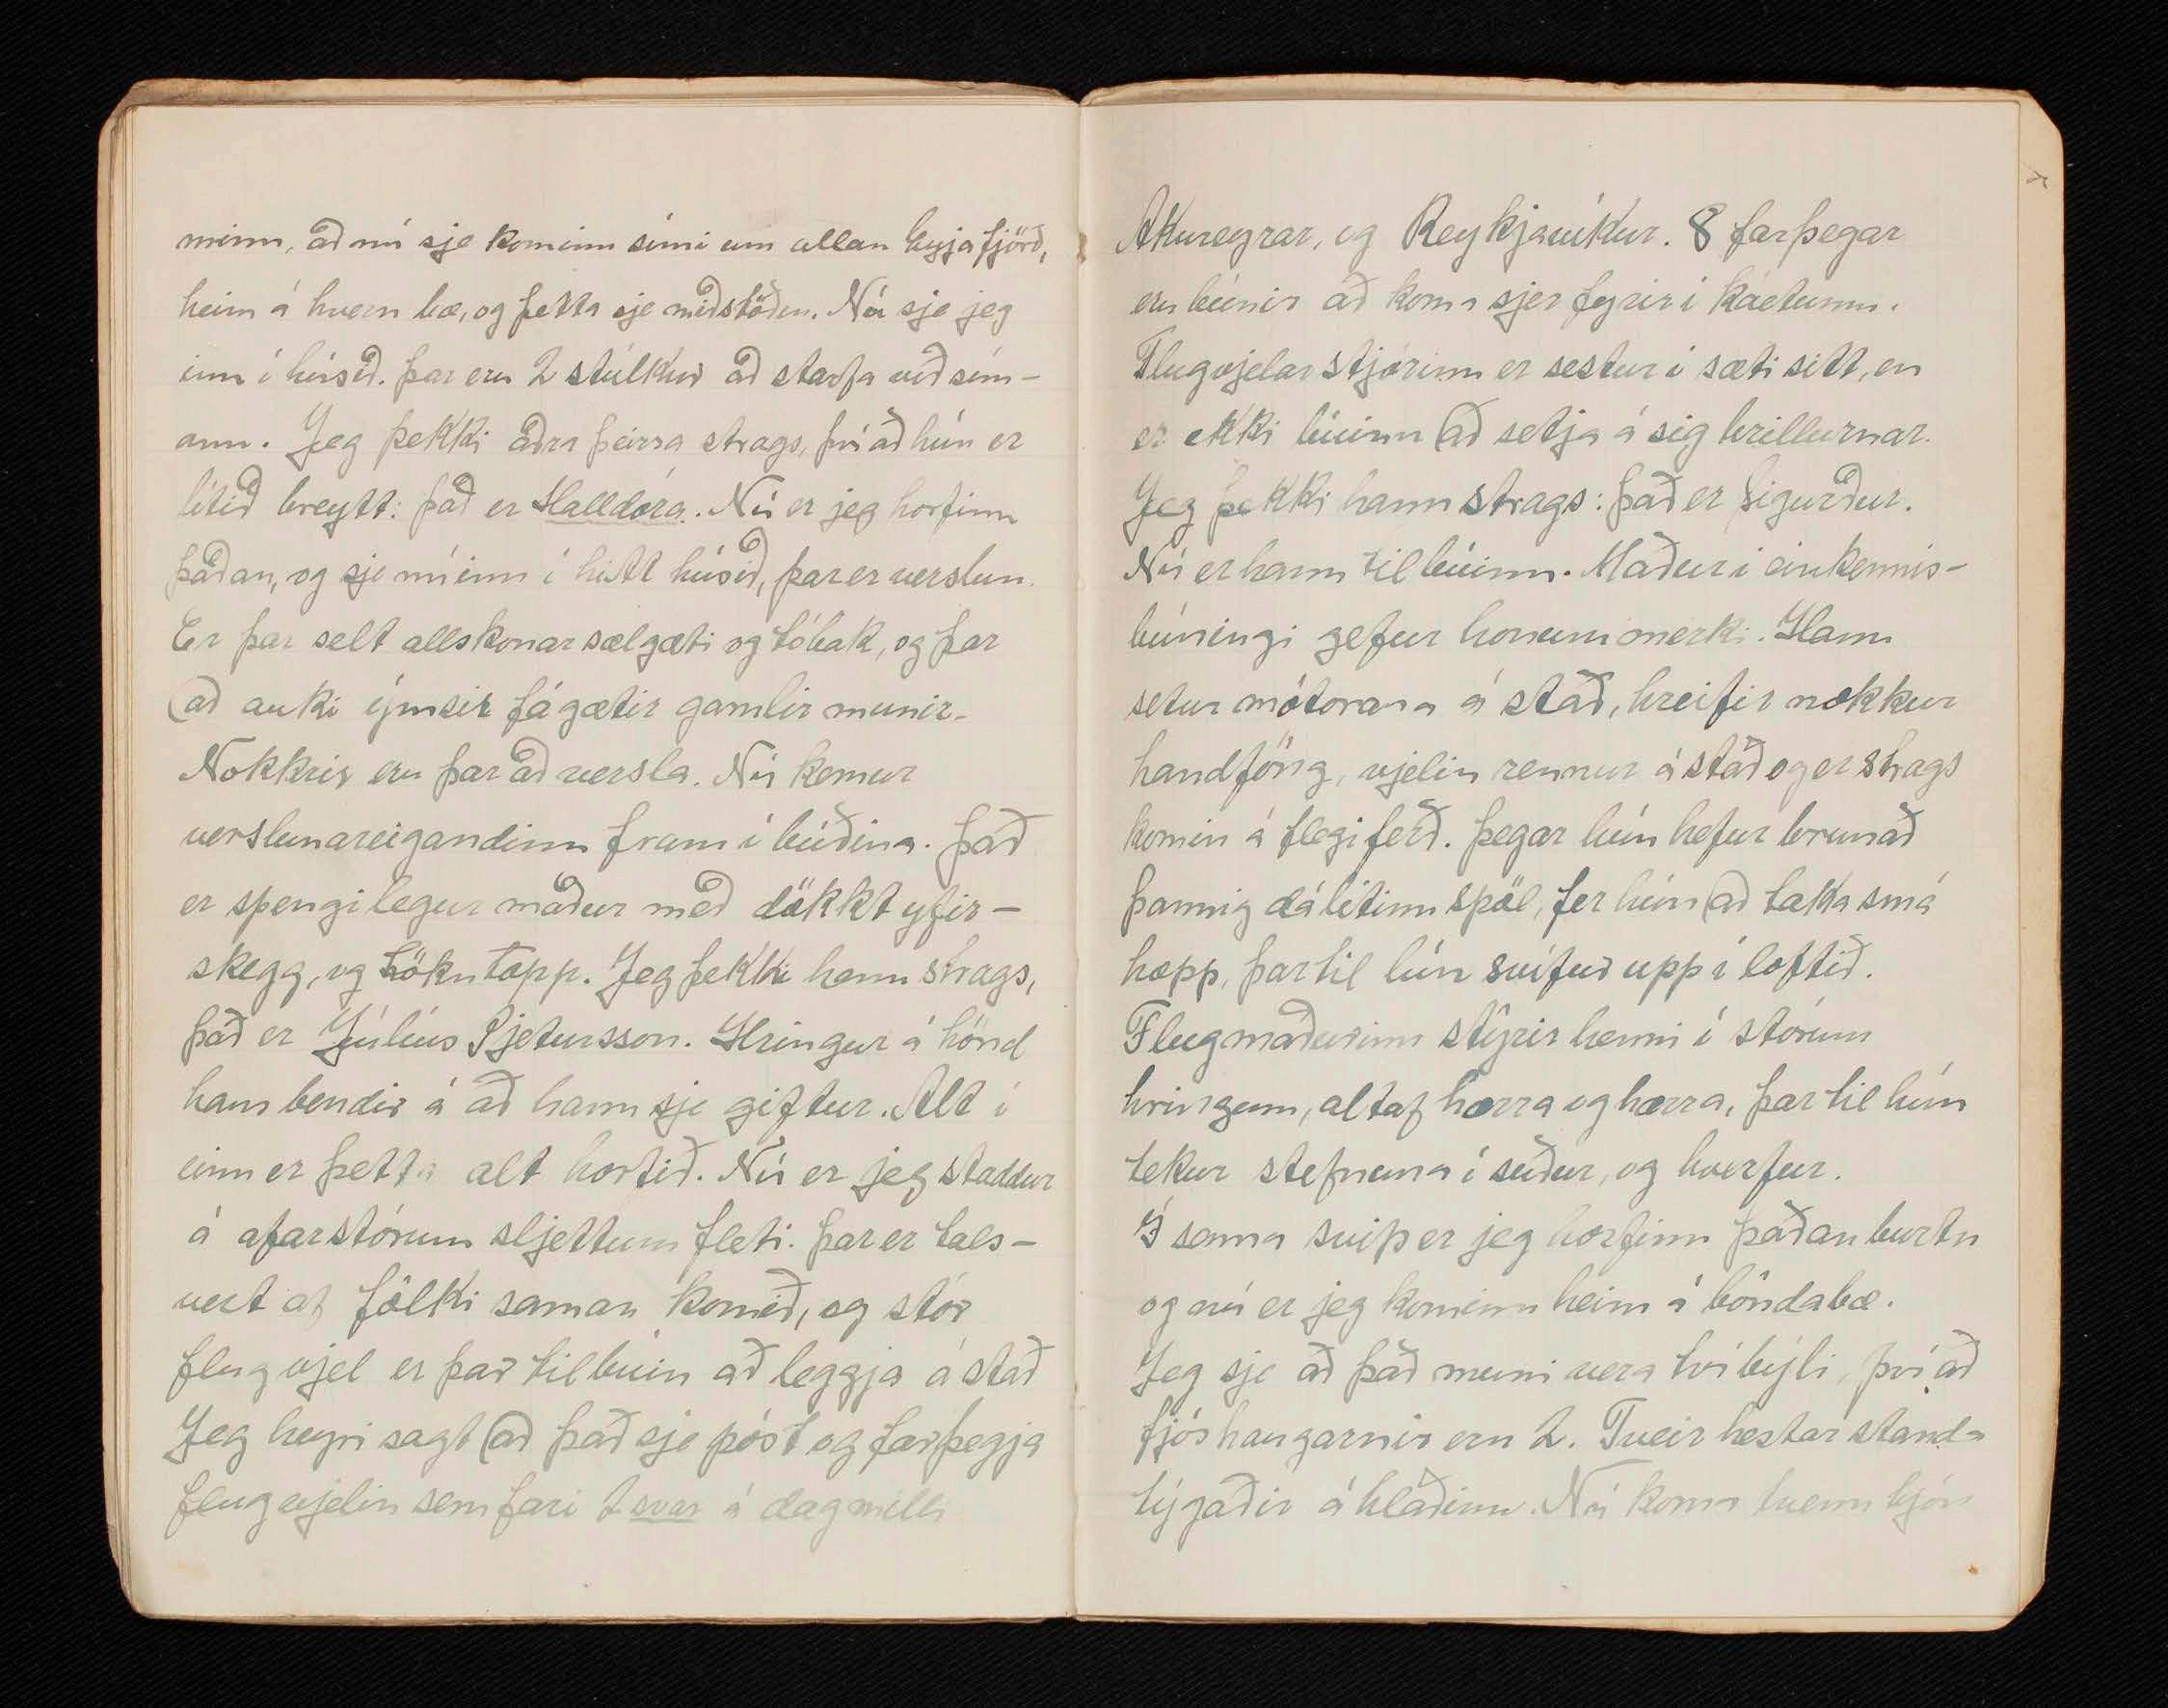 minn, að nú sje kominn sími um allan Eyjafjörð,
heim á hvern bæ, og þetta sje miðstöðin. Nú sje jeg
inn í húsið. Þar eru 2 stúlkur að starfa við sím-
ann. Jeg þekki aðra þeirra strags, því að hún er
lítið breytt: það er Halldóra. Nú er jeg horfinn
þaðan, og sje nú inn í hitt húsið, þar er verslun.
Er þar selt allskonar sælgæti og tóbak, og þar
að auki ýmsir fágætir gamlir munir.
Nokkrir eru þar að versla. Nú kemur
verslunareigandinn fram í búðina. Það
er spengilegur maður með dökkt yfir-
skegg, og hökutopp. Jeg þekki hann strags,
það er Júlíus Pjetursson. Hringur á hönd
hans bendir á að hann sje giftur. Alt í
einu er þetta alt horfið. Nú er jeg staddur
á afarstórum sljettum fleti. Þar er tals-
vert af fólki saman komið, og stór
flugvjel er þar tilbúin að leggja á stað
Jeg heyri sagt að það sje póst og farþegja
flugvjelin sem fari 2svar á dag milli
Akureyrar, og Reykjavíkur. 8 farþegar
eru búnir að koma sjer fyrir í káetunni.
Flugvjelarstjórinn er sestur í sæti sitt, en
er ekki búinn að setja á sig brillurnar.
Jeg þekki hann strags: það er Sigurður.
Nú er hann tilbúinn. Maður í einkennis-
búningi gefur honum merki. Hann
setur mótorana á stað, hreifir nokkur
handföng, vjelin rennur á stað og er strags
komin á flegiferð. Þegar hún hefur brunað
þannig dálítinn spöl, fer hún að taka smá
hopp, þar til hún svífur upp í loftið.
Flugmaðurinn stýrir henni í stórum
hringum, altaf hærra og hærra, þar til hún
tekur stefnuna í suður, og hverfur.
Í sama svip er jeg horfinn þaðan burtu
og nú er jeg kominn heim á bóndabæ.
Jeg sje að það muni vera tvíbýli, því að
fjóshaugarnir eru 2. Tveir hestar standa
týgaðir á hlaðinu. Nú koma tvenn hjón